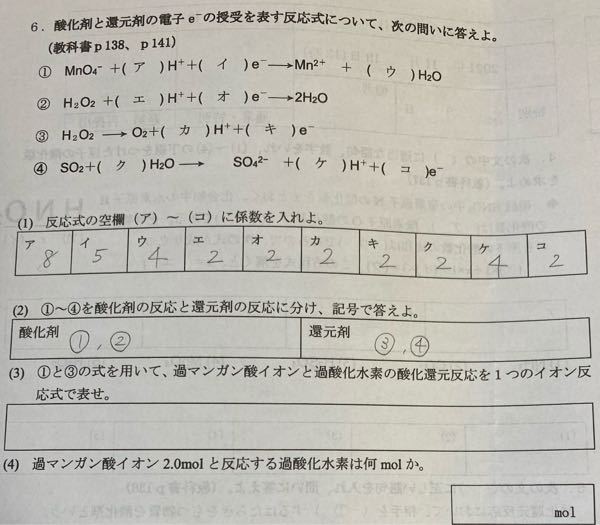 6．酸化剤と還元剤の電子 e⁻の授受を表す反応式について、次の問いに答えよ。
(教科書p138、p141)
① MnO₄⁻ +( ア )H⁺+( イ )e⁻→Mn²⁺ +( ウ )H₂O
② H₂O₂ +( エ )H⁺+( オ )e⁻→2H₂O
③ H₂O₂ → O₂+( カ )H⁺+( キ )e⁻
④ SO₂+( ク )H₂O→ SO₄²⁻ +( ケ )H⁺+( コ )e⁻
(1) 反応式の空欄（ア）～（コ）に係数を入れよ。
ア イ ウ エ オ カ キ ク ケ コ
8 5 4 2 2 2 2 2 4 2
(2) ①～④を酸化剤の反応と還元剤の反応に分け、記号で答えよ。
酸化剤 ①，② 還元剤 ③，④
(3) ①と③の式を用いて、過マンガン酸イオンと過酸化水素の酸化還元反応を1つのイオン反
応式で表せ。
(4) 過マンガン酸イオン 2.0mol と反応する過酸化水素は何 mol か。
mol